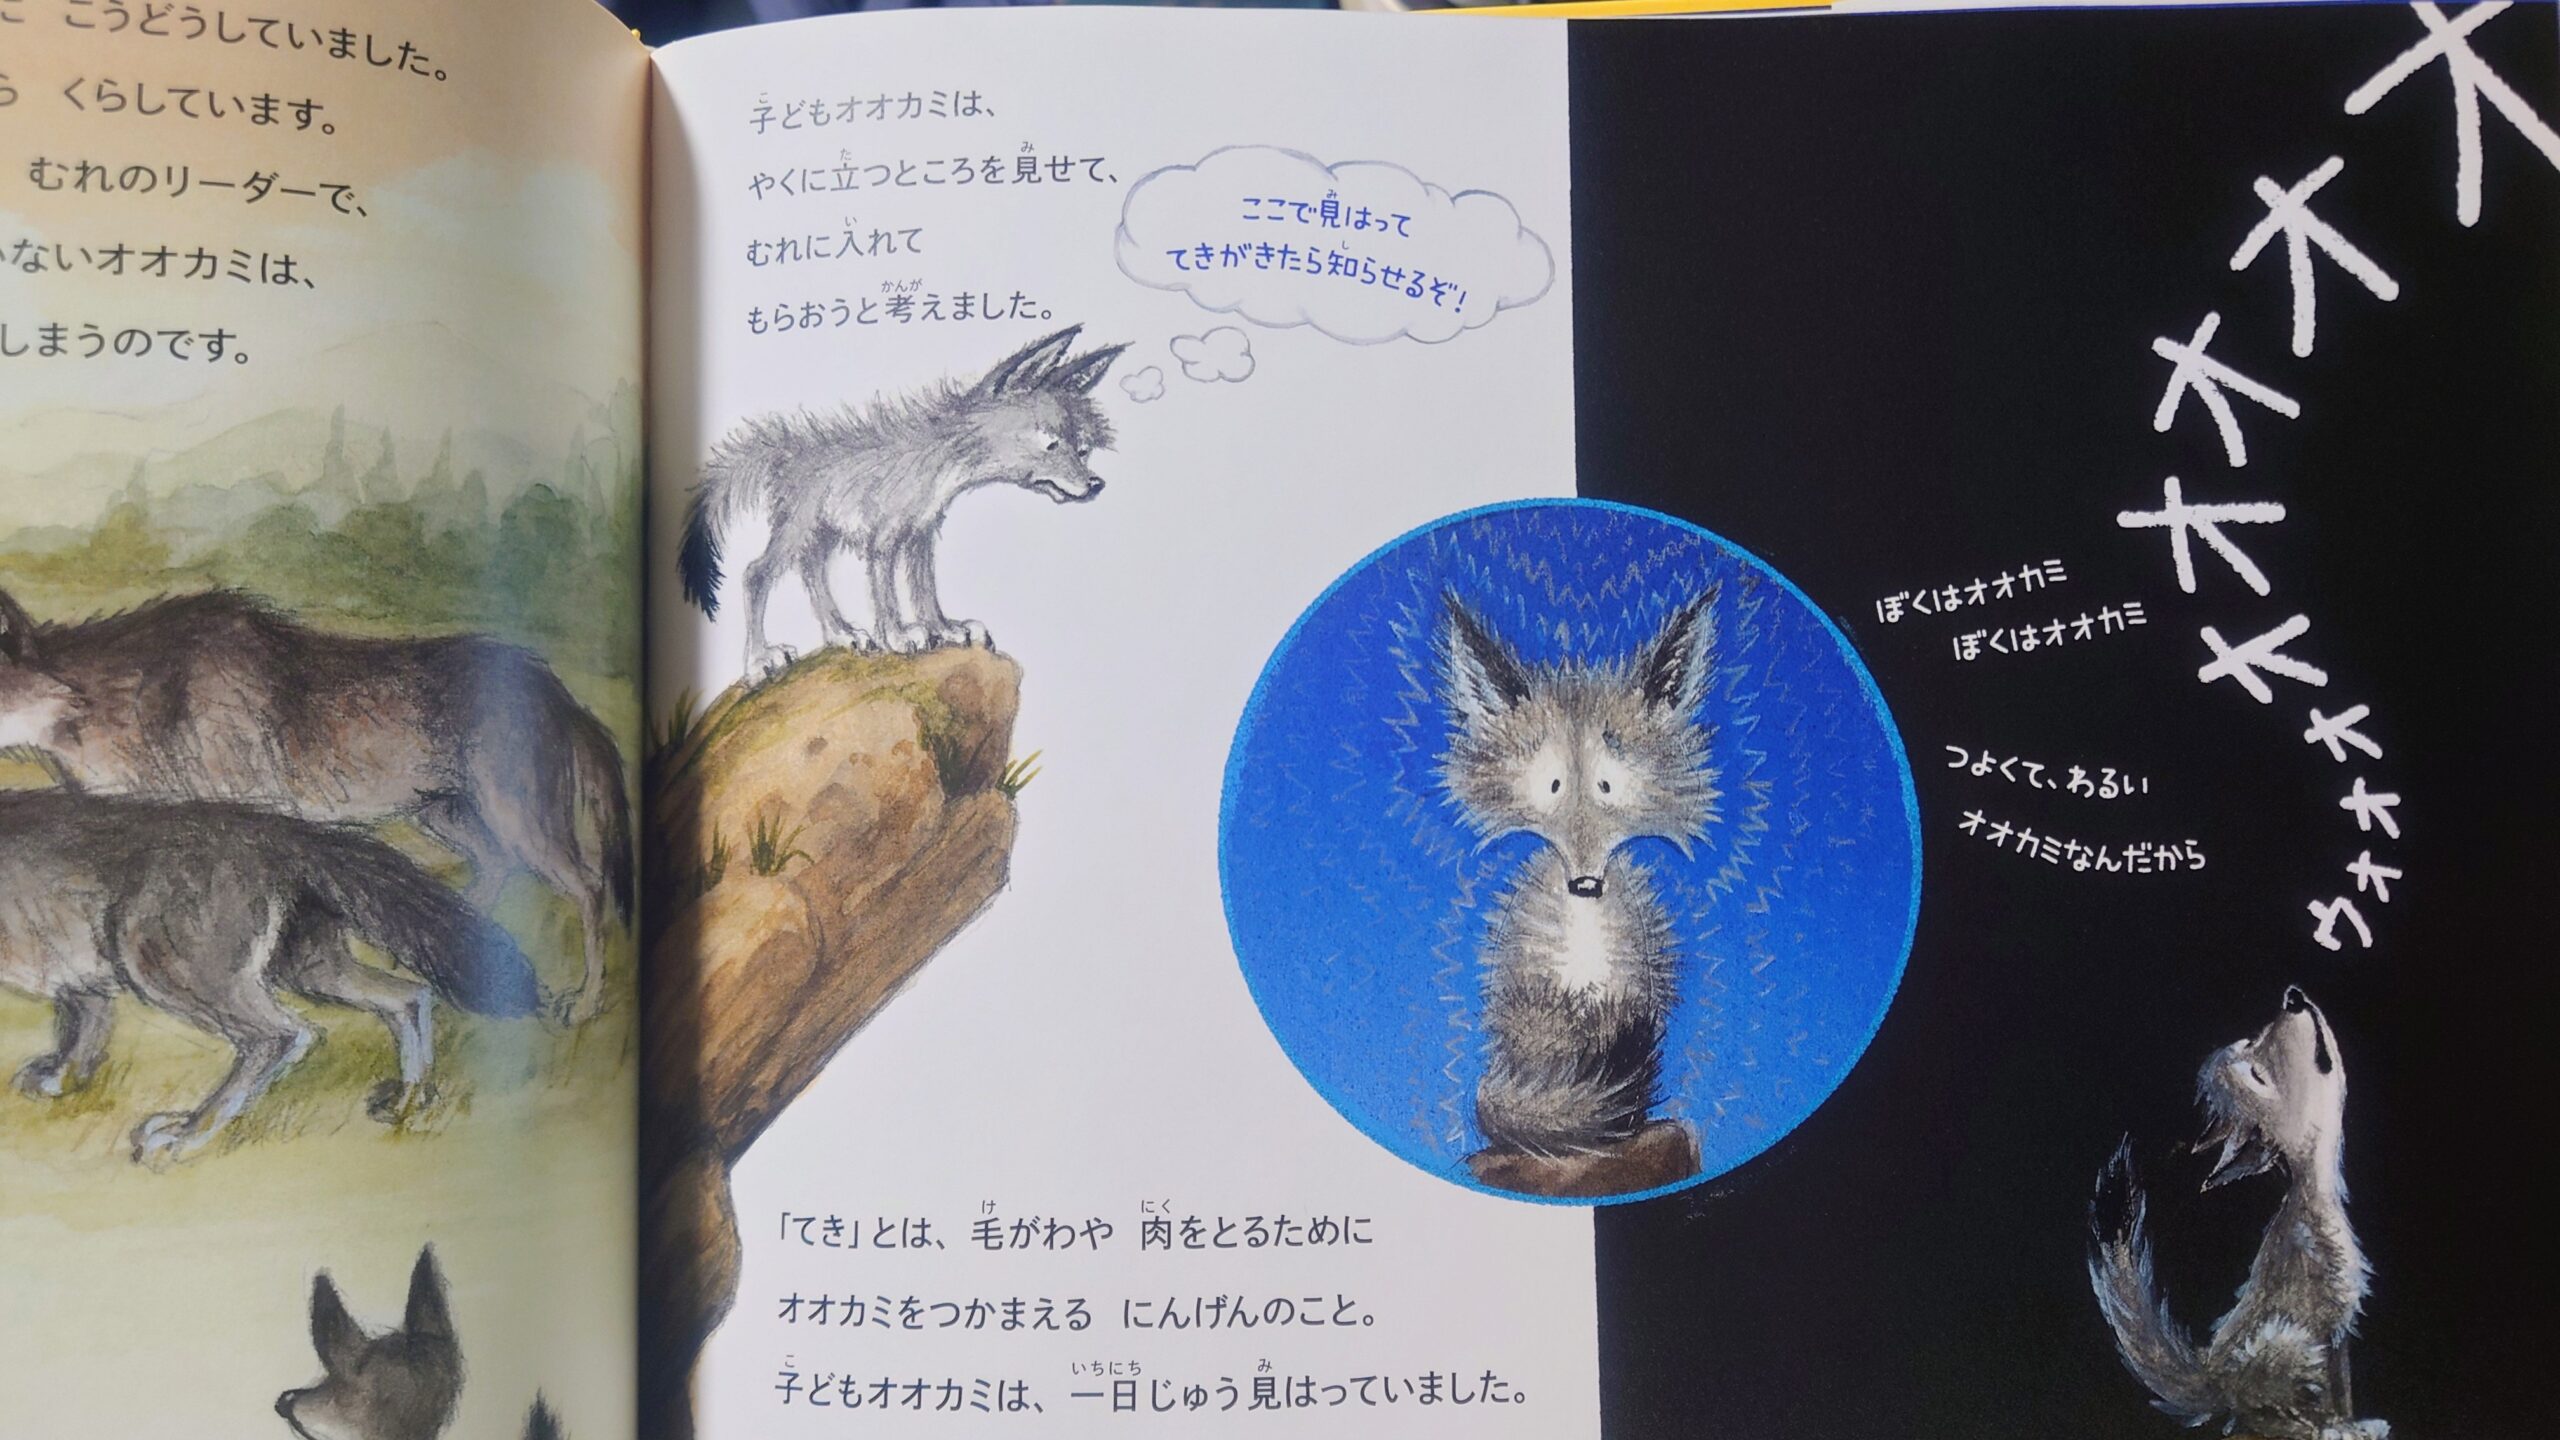 こうどうしていました。
くらしています。
むれのリーダーで、
ないオオカミは、
しまうのです。
子どもオオカミは、
やくに立つところを見せて、
むれに入れて
もらおうと考えました。
ここで見はって
てきがきたら知らせるぞ!
ぼくはオオカミ
ぼくはオオカミ
つよくて、わるい
オオカミなんだから
ウォオオオオオオオ
「てき」とは、毛がわや 肉をとるために
オオカミをつかまえる にんげんのこと。
子どもオオカミは、一日じゅう見はっていました。